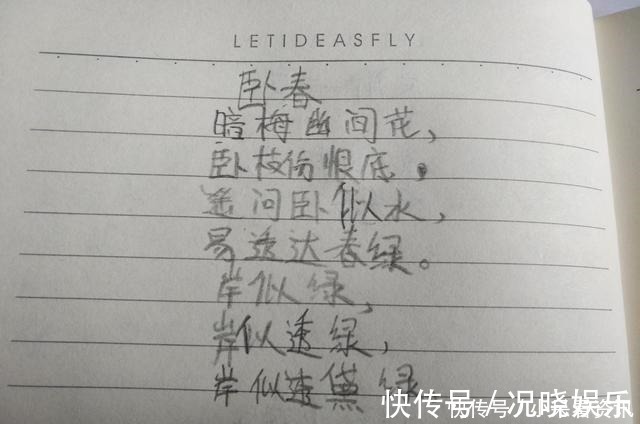 LETIDEASFLY
卧春
暗梅幽间花，
卧枝伤恨底，
遥问卧似水，
易透达春绿。
岸似绿，
岸似透绿，
岸似透黛绿
快传号／况晓娱乐